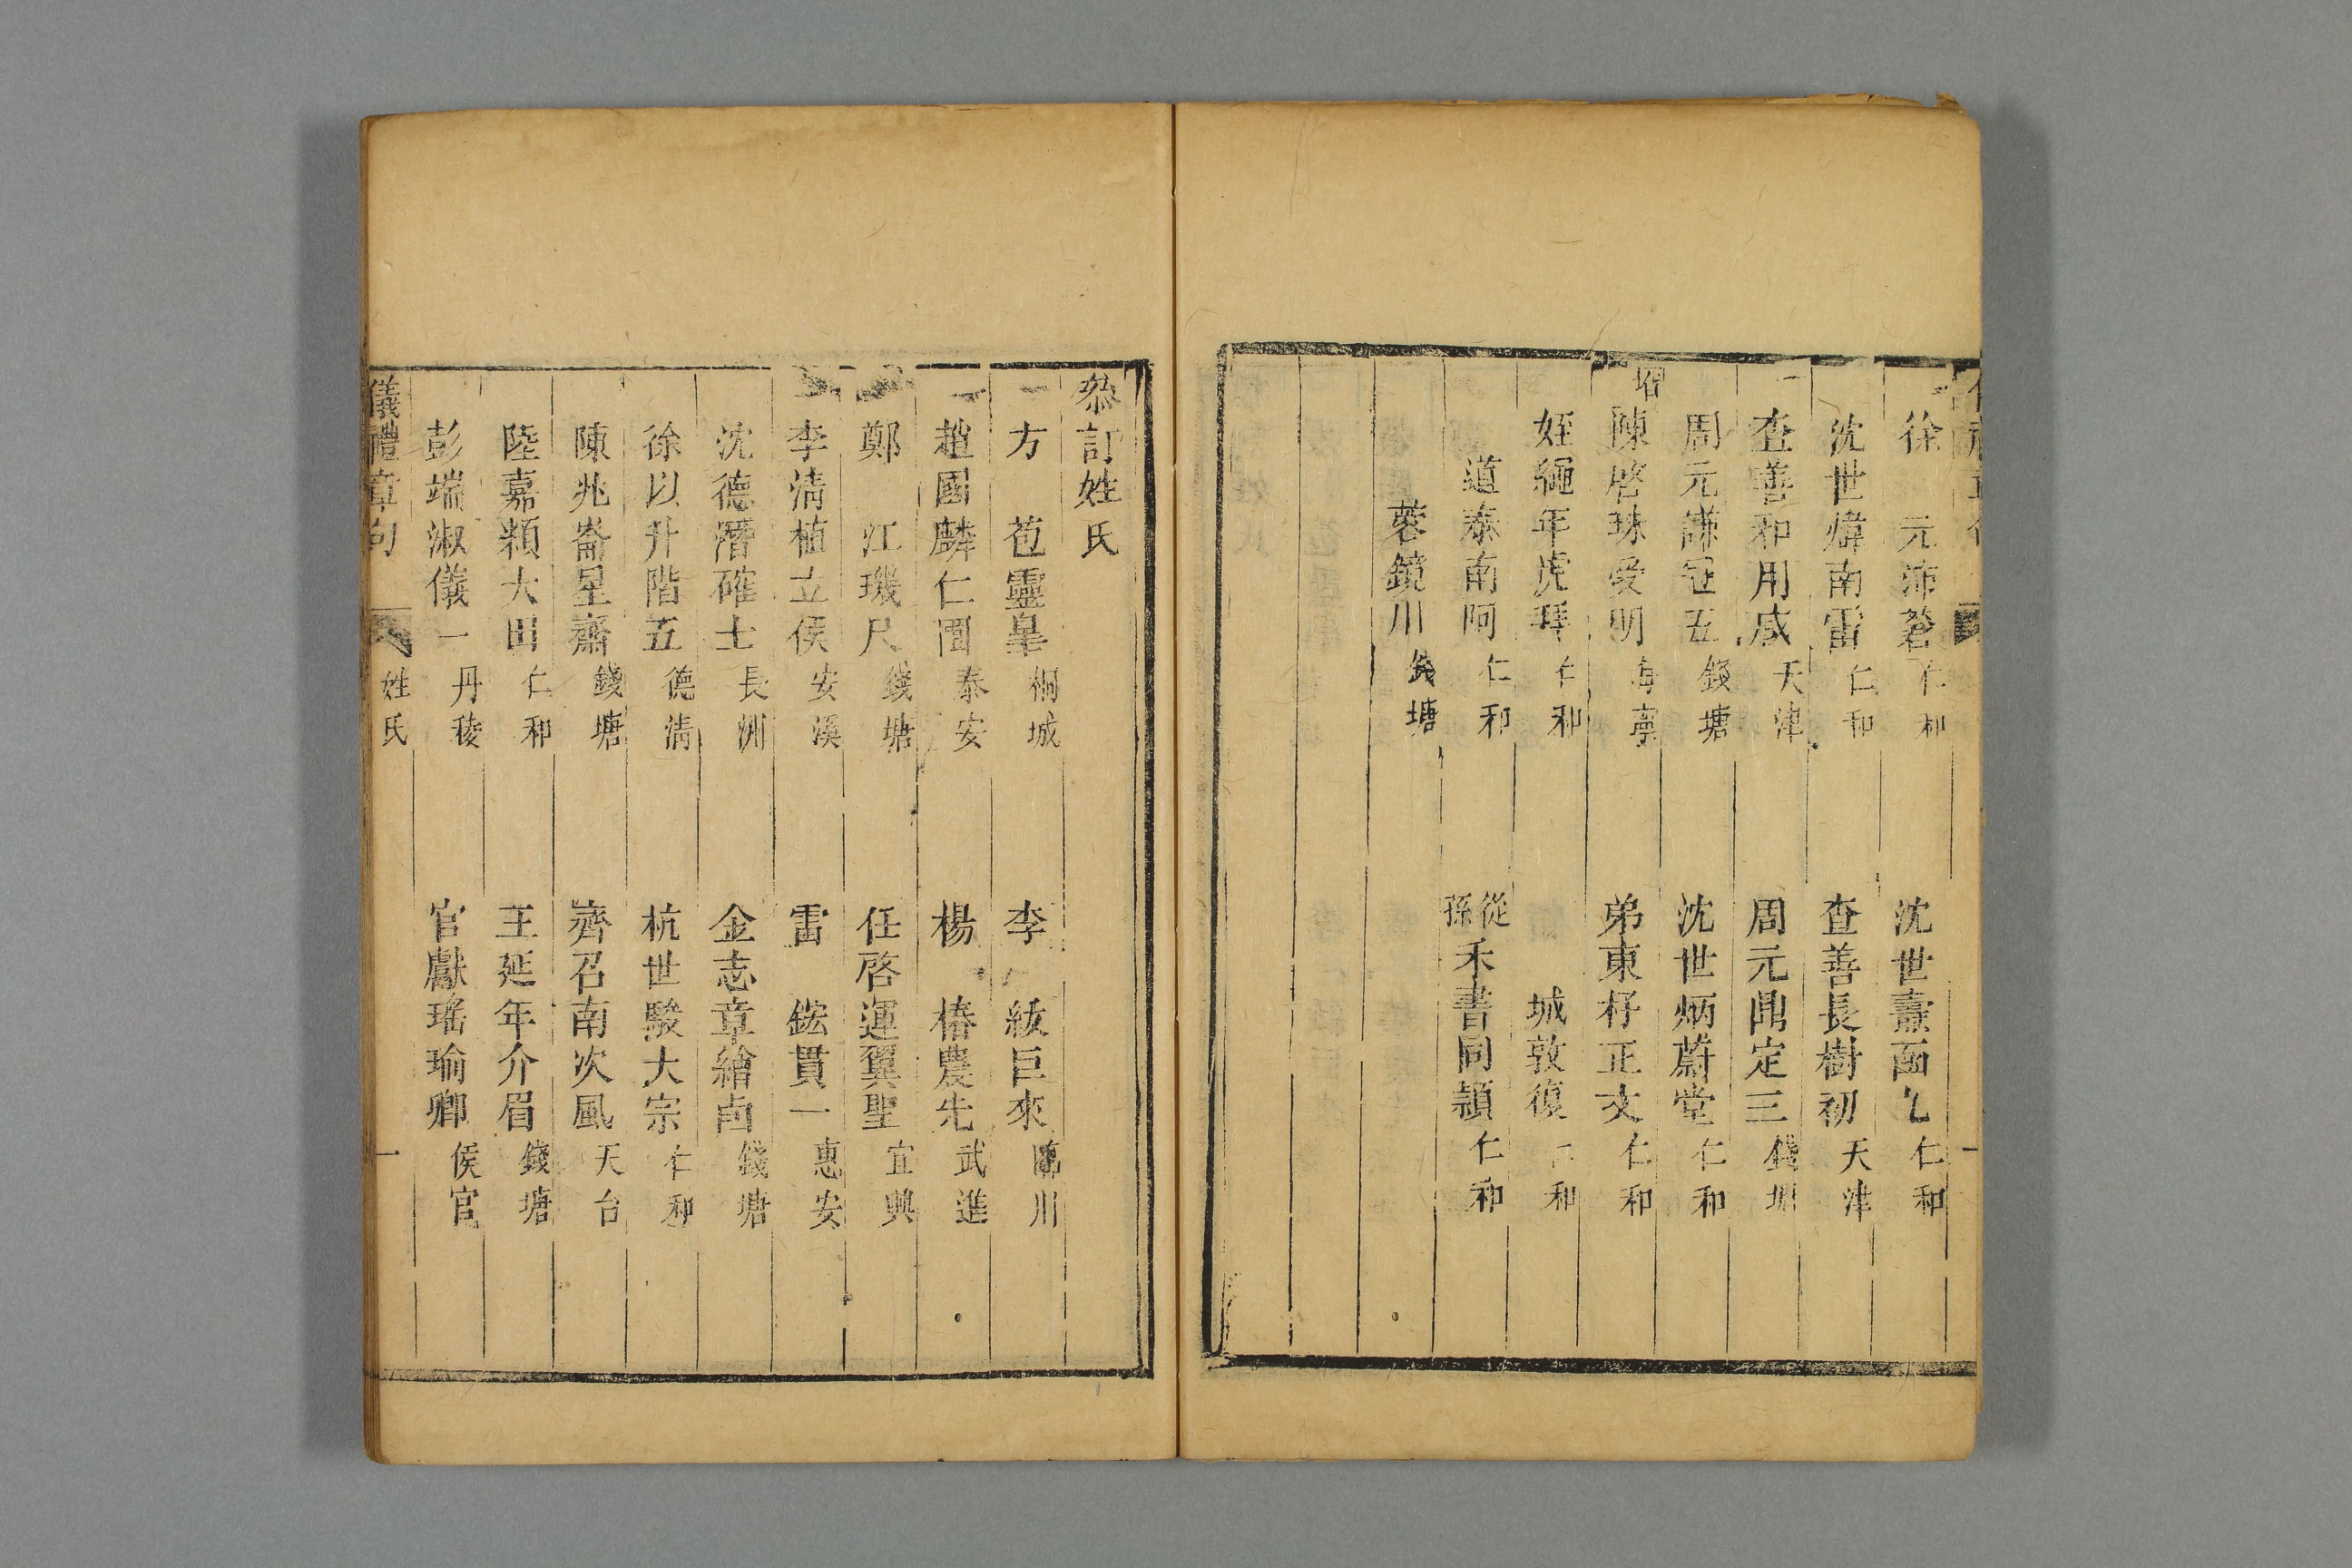 徐 元沛蒼仁和 沈世燾函乙仁和
沈世煒南雷仁和 查善長樹初天津
查善和用咸天津 周元鼎定三錢塘
周元謙冠五錢塘 沈世炳蔚堂仁和
壻陳啓珠受明海寧 弟東杼正文仁和
姪繩年虎拜仁和 城敦復仁和
道泰南阿仁和 從孫禾書同頴仁和
蓉鏡川錢塘
叅訂姓氏
方 苞靈臯桐城 李 紱巨來臨川
趙國麟仁圃泰安 楊 椿農先武進
鄭 江璣尺錢塘 任啓運翼聖宜興
李清植立侯安溪 雷 鋐貫一惠安
沈德潛確士長洲 金志章繪卣錢塘
徐以升階五德清 杭世駿大宗仁和
陳兆崙星齋錢塘 齊召南次風天台
陸嘉穎大田仁和 王延年介眉錢塘
彭端淑儀一丹稜 官獻瑤瑜卿侯官
儀禮章句 姓氏 一